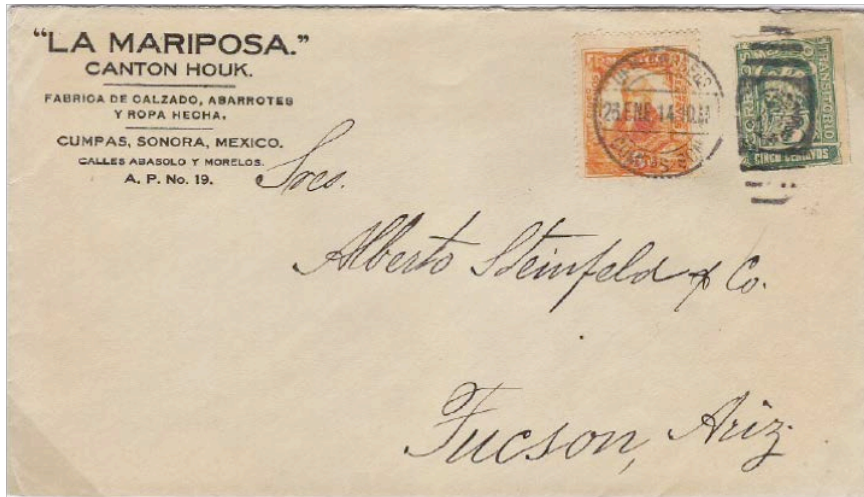 "LA MARIPOSA."
CANTON HOUK.
FABRICA DE CALZADO, ABARROTES
Y ROPA HECHA.
CUMPAS, SONORA, MEXICO.
CALLES ABASOLO Y MORELOS.
A. P. No. 19.
CORREOS MEXICO TRANSITORIO
CINCO CENTAVOS
26 ENE 14
Sres.
Alberto Steinfeld & Co.
Tucson, Ariz.